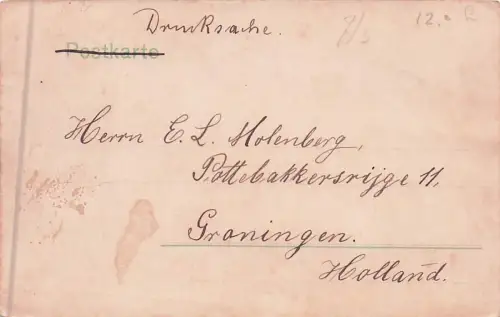 Drucksache.
12.
Postkarte
Herrn E. L. Molenberg,
Pottebakkersrijge 11,
Groningen.
Holland.